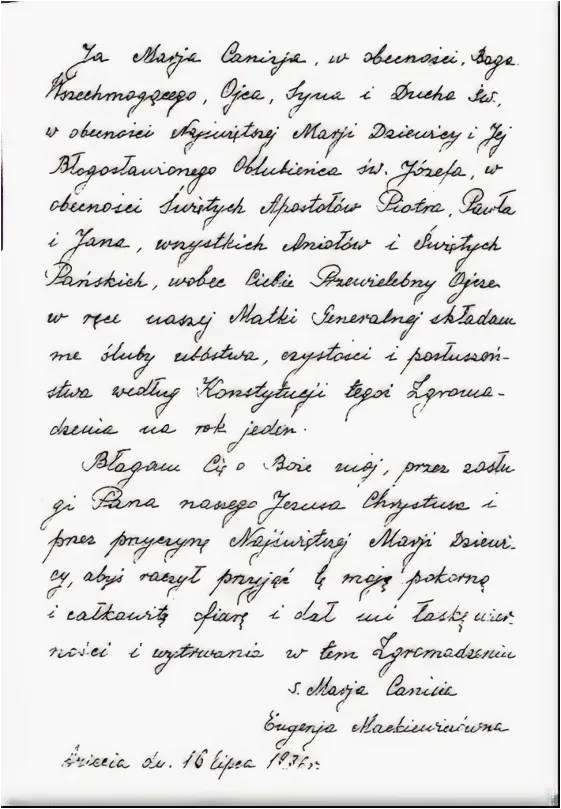 Ja Marja Canizja, w obecności Boga
Wszechmogącego, Ojca, Syna i Ducha św.,
w obecności Najświętszej Marji Dziewicy i Jej
Błogosławionego Oblubieńca św. Józefa, w
obecności Świętych Apostołów Piotra, Pawła
i Jana, wszystkich Aniołów i Świętych
Pańskich, wobec Ciebie Przewielebny Ojcze
w ręce naszej Matki Generalnej składam
me śluby ubóstwa, czystości i posłuszeń-
stwa według Konstytucji tegoż Zgroma-
dzenia na rok jeden.
Błagam Cię o Boże mój, przez zasłu
gi Pana naszego Jezusa Chrystusa i
przez przyczynę Najświętszej Marji Dziewi-
cy, abyś raczył przyjąć tę moją pokorną
i całkowitą ofiarę i dał mi łaskę wier-
ności i wytrwania w tem Zgromadzeniu
s. Marja Canizia
Eugenja Mackiewiczówna
dn. 16 lipca 1936 r.